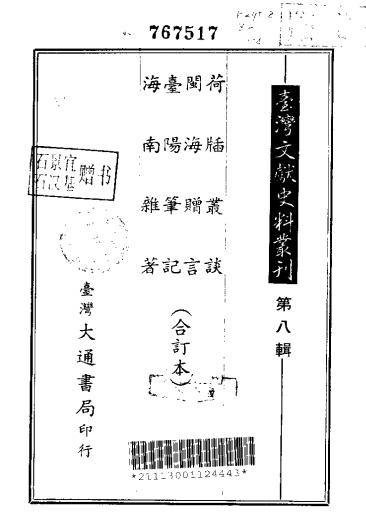 767517
臺灣文獻史料叢刊
第八輯
荷牐叢談
閩海贈言
臺陽筆記
海南雜著
(合訂本)
石景宜
石汉基
赠书
臺灣大通書局印行
*21113001124443*